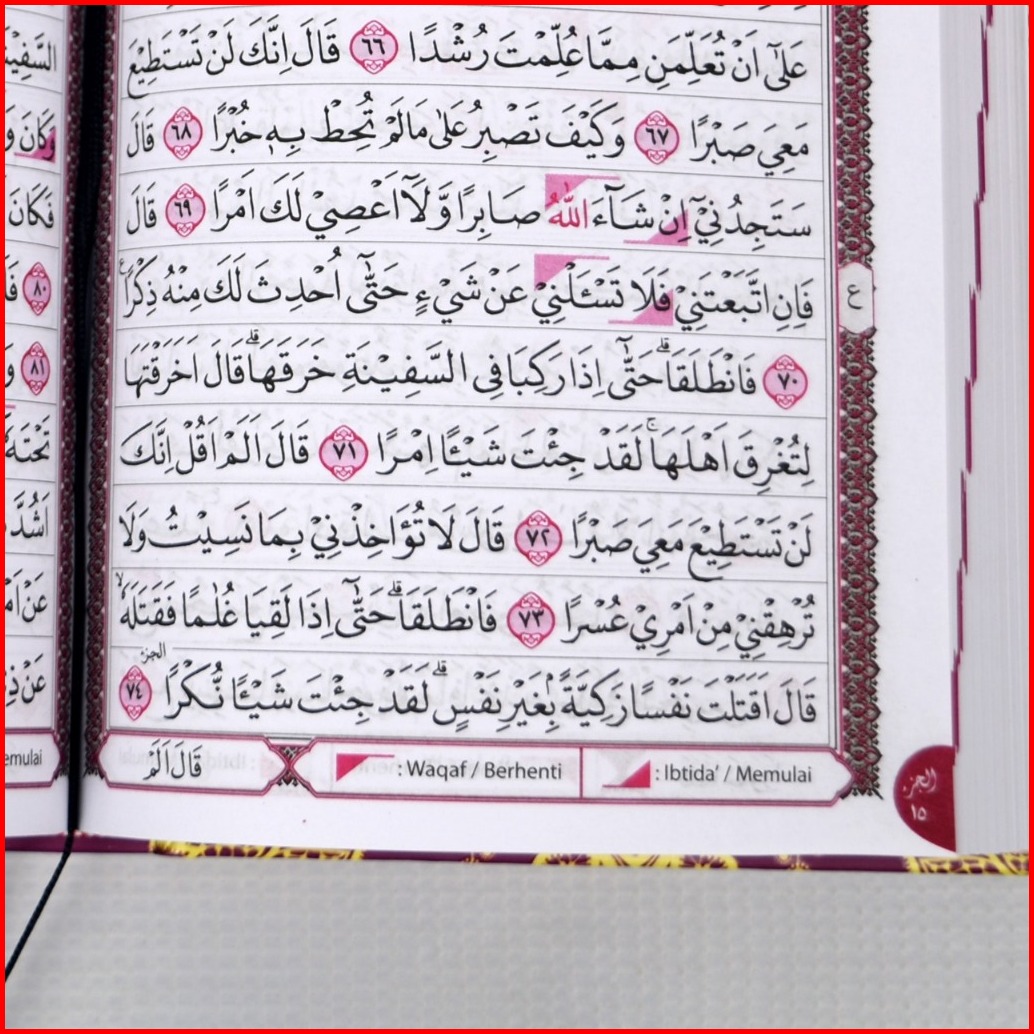 عَلٰٓى اَنْ تُعَلِّمَنِ مِمَّا عُلِّمْتَ رُشْدًا ٦٦ قَالَ اِنَّكَ لَنْ تَسْتَطِيْعَ
مَعِيَ صَبْرًا ٦٧ وَكَيْفَ تَصْبِرُ عَلٰى مَالَمْ تُحِطْ بِهٖ خُبْرًا ٦٨ قَالَ
سَتَجِدُنِيْٓ اِنْ شَاۤءَ اللّٰهُ صَابِرًا وَّلَآ اَعْصِيْ لَكَ اَمْرًا ٦٩ قَالَ
فَاِنِ اتَّبَعْتَنِيْ فَلَا تَسْـَٔلْنِيْ عَنْ شَيْءٍ حَتّٰٓى اُحْدِثَ لَكَ مِنْهُ ذِكْرًا ࣖ
٧٠ فَانْطَلَقَاۗ حَتّٰٓى اِذَا رَكِبَا فِى السَّفِيْنَةِ خَرَقَهَاۗ قَالَ اَخَرَقْتَهَا
لِتُغْرِقَ اَهْلَهَاۚ لَقَدْ جِئْتَ شَيْـًٔا اِمْرًا ٧١ قَالَ اَلَمْ اَقُلْ اِنَّكَ
لَنْ تَسْتَطِيْعَ مَعِيَ صَبْرًا ٧٢ قَالَ لَا تُؤَاخِذْنِيْ بِمَا نَسِيْتُ وَلَا
تُرْهِقْنِيْ مِنْ اَمْرِيْ عُسْرًا ٧٣ فَانْطَلَقَاۗ حَتّٰٓى اِذَا لَقِيَا غُلٰمًا فَقَتَلَهٗۙ
الجزء
قَالَ اَقَتَلْتَ نَفْسًا زَكِيَّةً ۢبِغَيْرِ نَفْسٍۗ لَقَدْ جِئْتَ شَيْـًٔا نُّكْرًا ٧٤
ع
: Ibtida' / Memulai
: Waqaf / Berhenti
قَالَ اَلَمْ
الجزء
١٥
وَكَانَ
فَكَانَ
٨٠
٨١
emulai